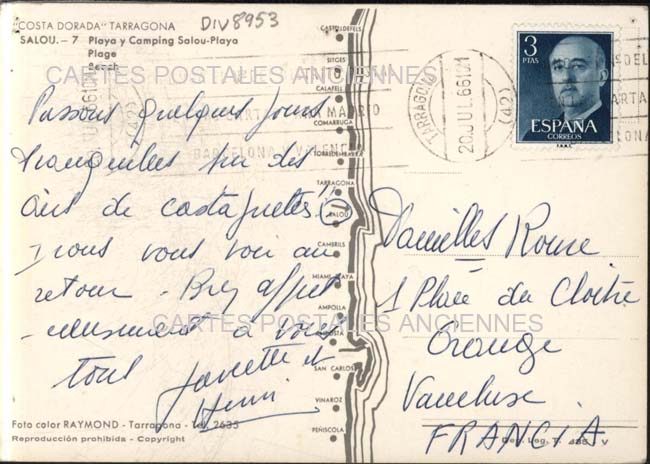 "COSTA DORADA" TARRAGONA
DIV8953
SALOU. – 7 Playa y Camping Salou-Playa
Plage
Beach
CARTES POSTALES ANCIENNES
Passons quelques jours
tranquilles sur des
airs de castagnettes
nous vous voir au
retour - Bien affect
-ueusement à vous
tous Janette et
Henri
Foto color RAYMOND - Tarragona - Tel. 2635
Reproducción prohibida - Copyright
CASTELLDEFELS
SITGES
CALAFELL
COMARRUGA
TORREDEMBARRA
TARRAGONA
SALOU
CAMBRILS
MIAMI PLAYA
AMPOLLA
SAN CARLOS
VINAROZ
PEÑISCOLA
TARRAGONA
20 JUL 66
(42)
BARCELONA Y VALENCIA
3
PTAS
ESPAÑA
CORREOS
Danielles Rome
1 Place du Cloître
Orange
Vaucluse
FRANCIA
CARTES POSTALES ANCIENNES
Dep. Leg. T. 435 - V